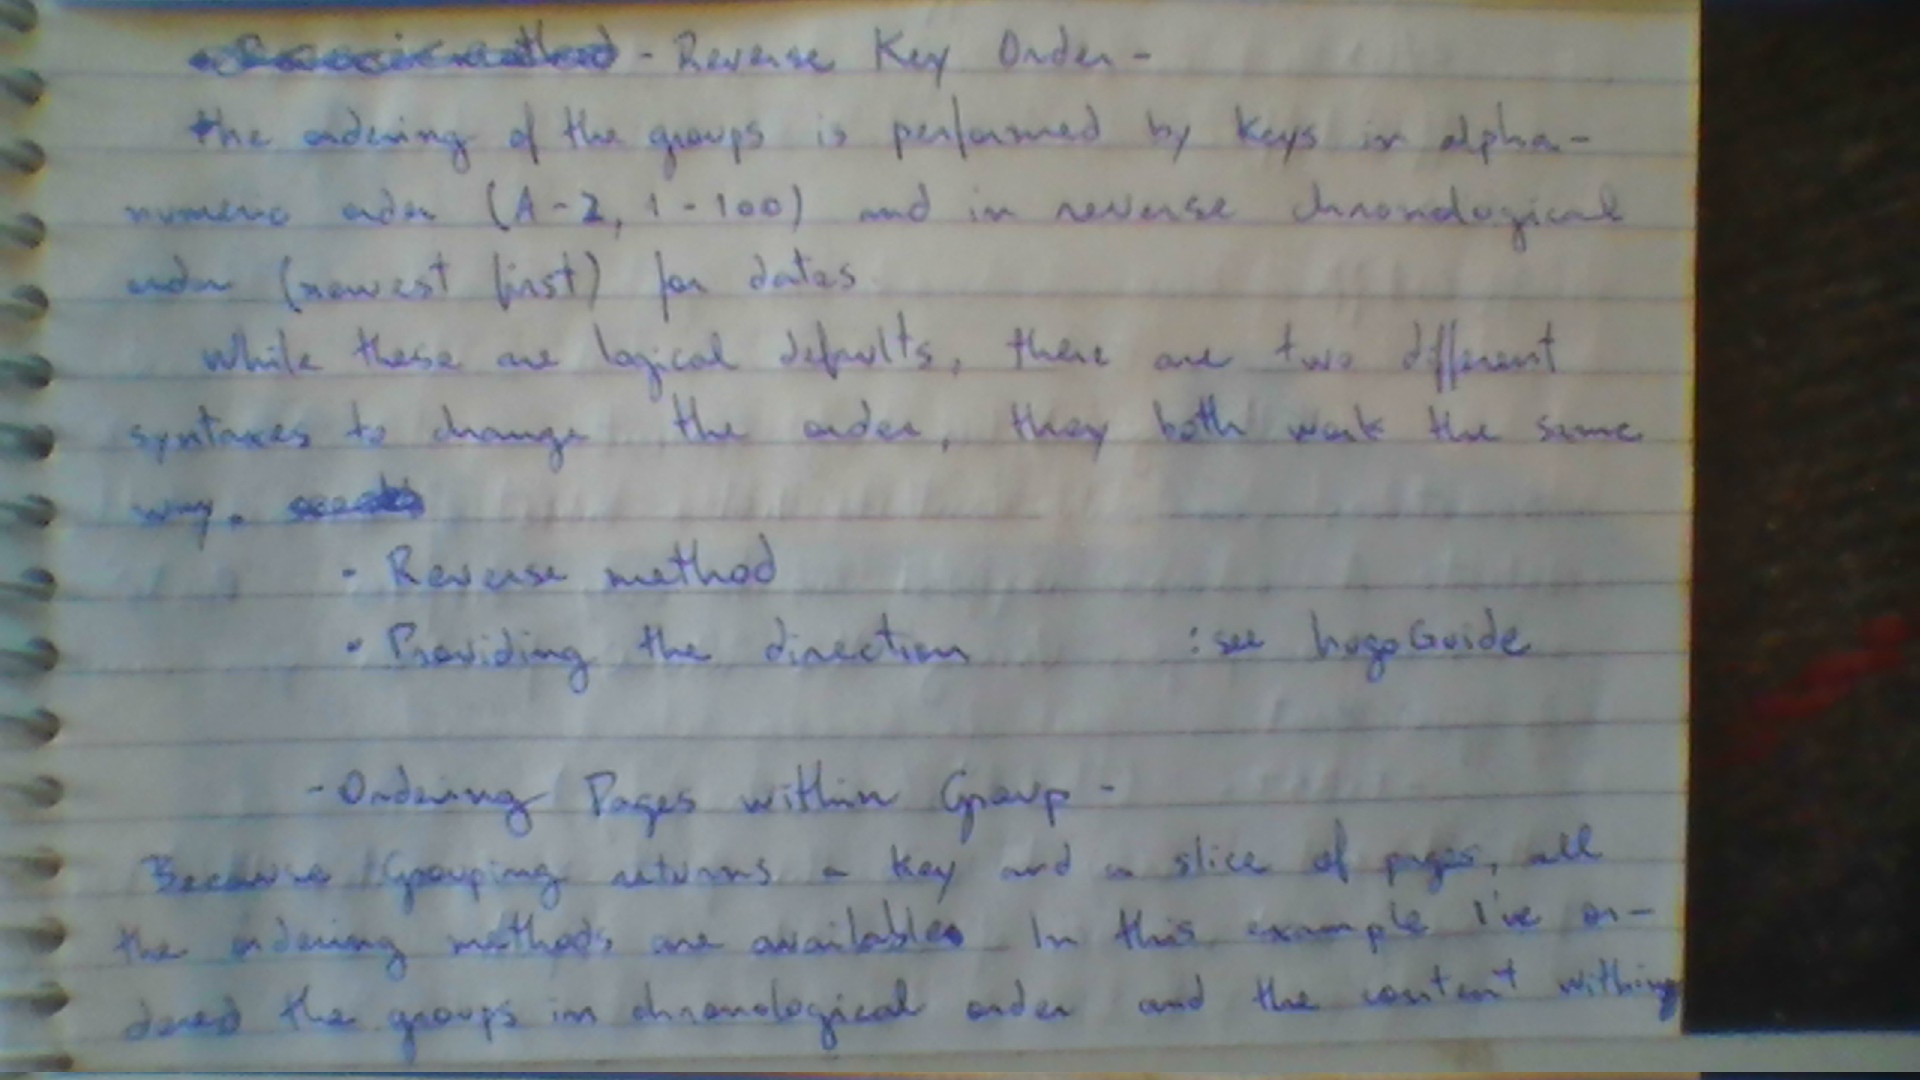 - Reverse Key Order -
the ordering of the groups is performed by keys in alpha-
numeric order (A-Z, 1-100) and in reverse chronological
order (newest first) for dates
while these are logical defaults, there are two different
syntaxes to change the order, they both work the same
way.
- Reverse method
- Providing the direction : see hugoGuide
- Ordering Pages within Group -
Because Grouping returns a key and a slice of pages, all
the ordering methods are available In this example I've or-
dered the groups in chronological order and the content withing